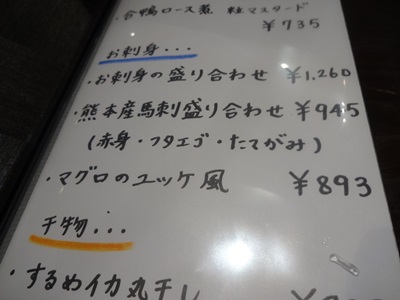 ・合鴨ロース煮 粒マスタード
￥735
お刺身...
・お刺身の盛り合わせ ￥1,260
・熊本産馬刺盛り合わせ ￥945
(赤身・フタエゴ・たてがみ)
・マグロのユッケ風 ￥893
干物...
・するめイカ丸干し